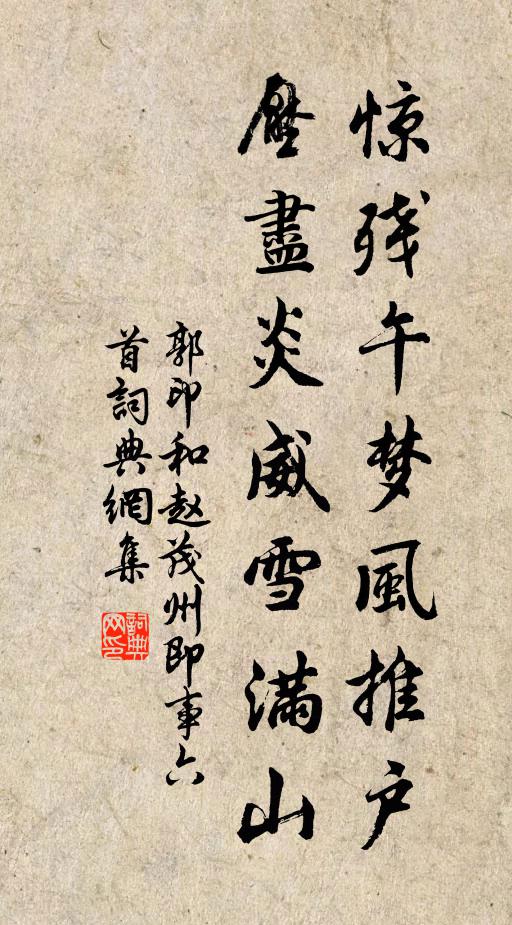 惊残午梦風推户
壓盡炎威雪滿山
郭印和赵茂州即事六
首詞典網集
詞典
网印